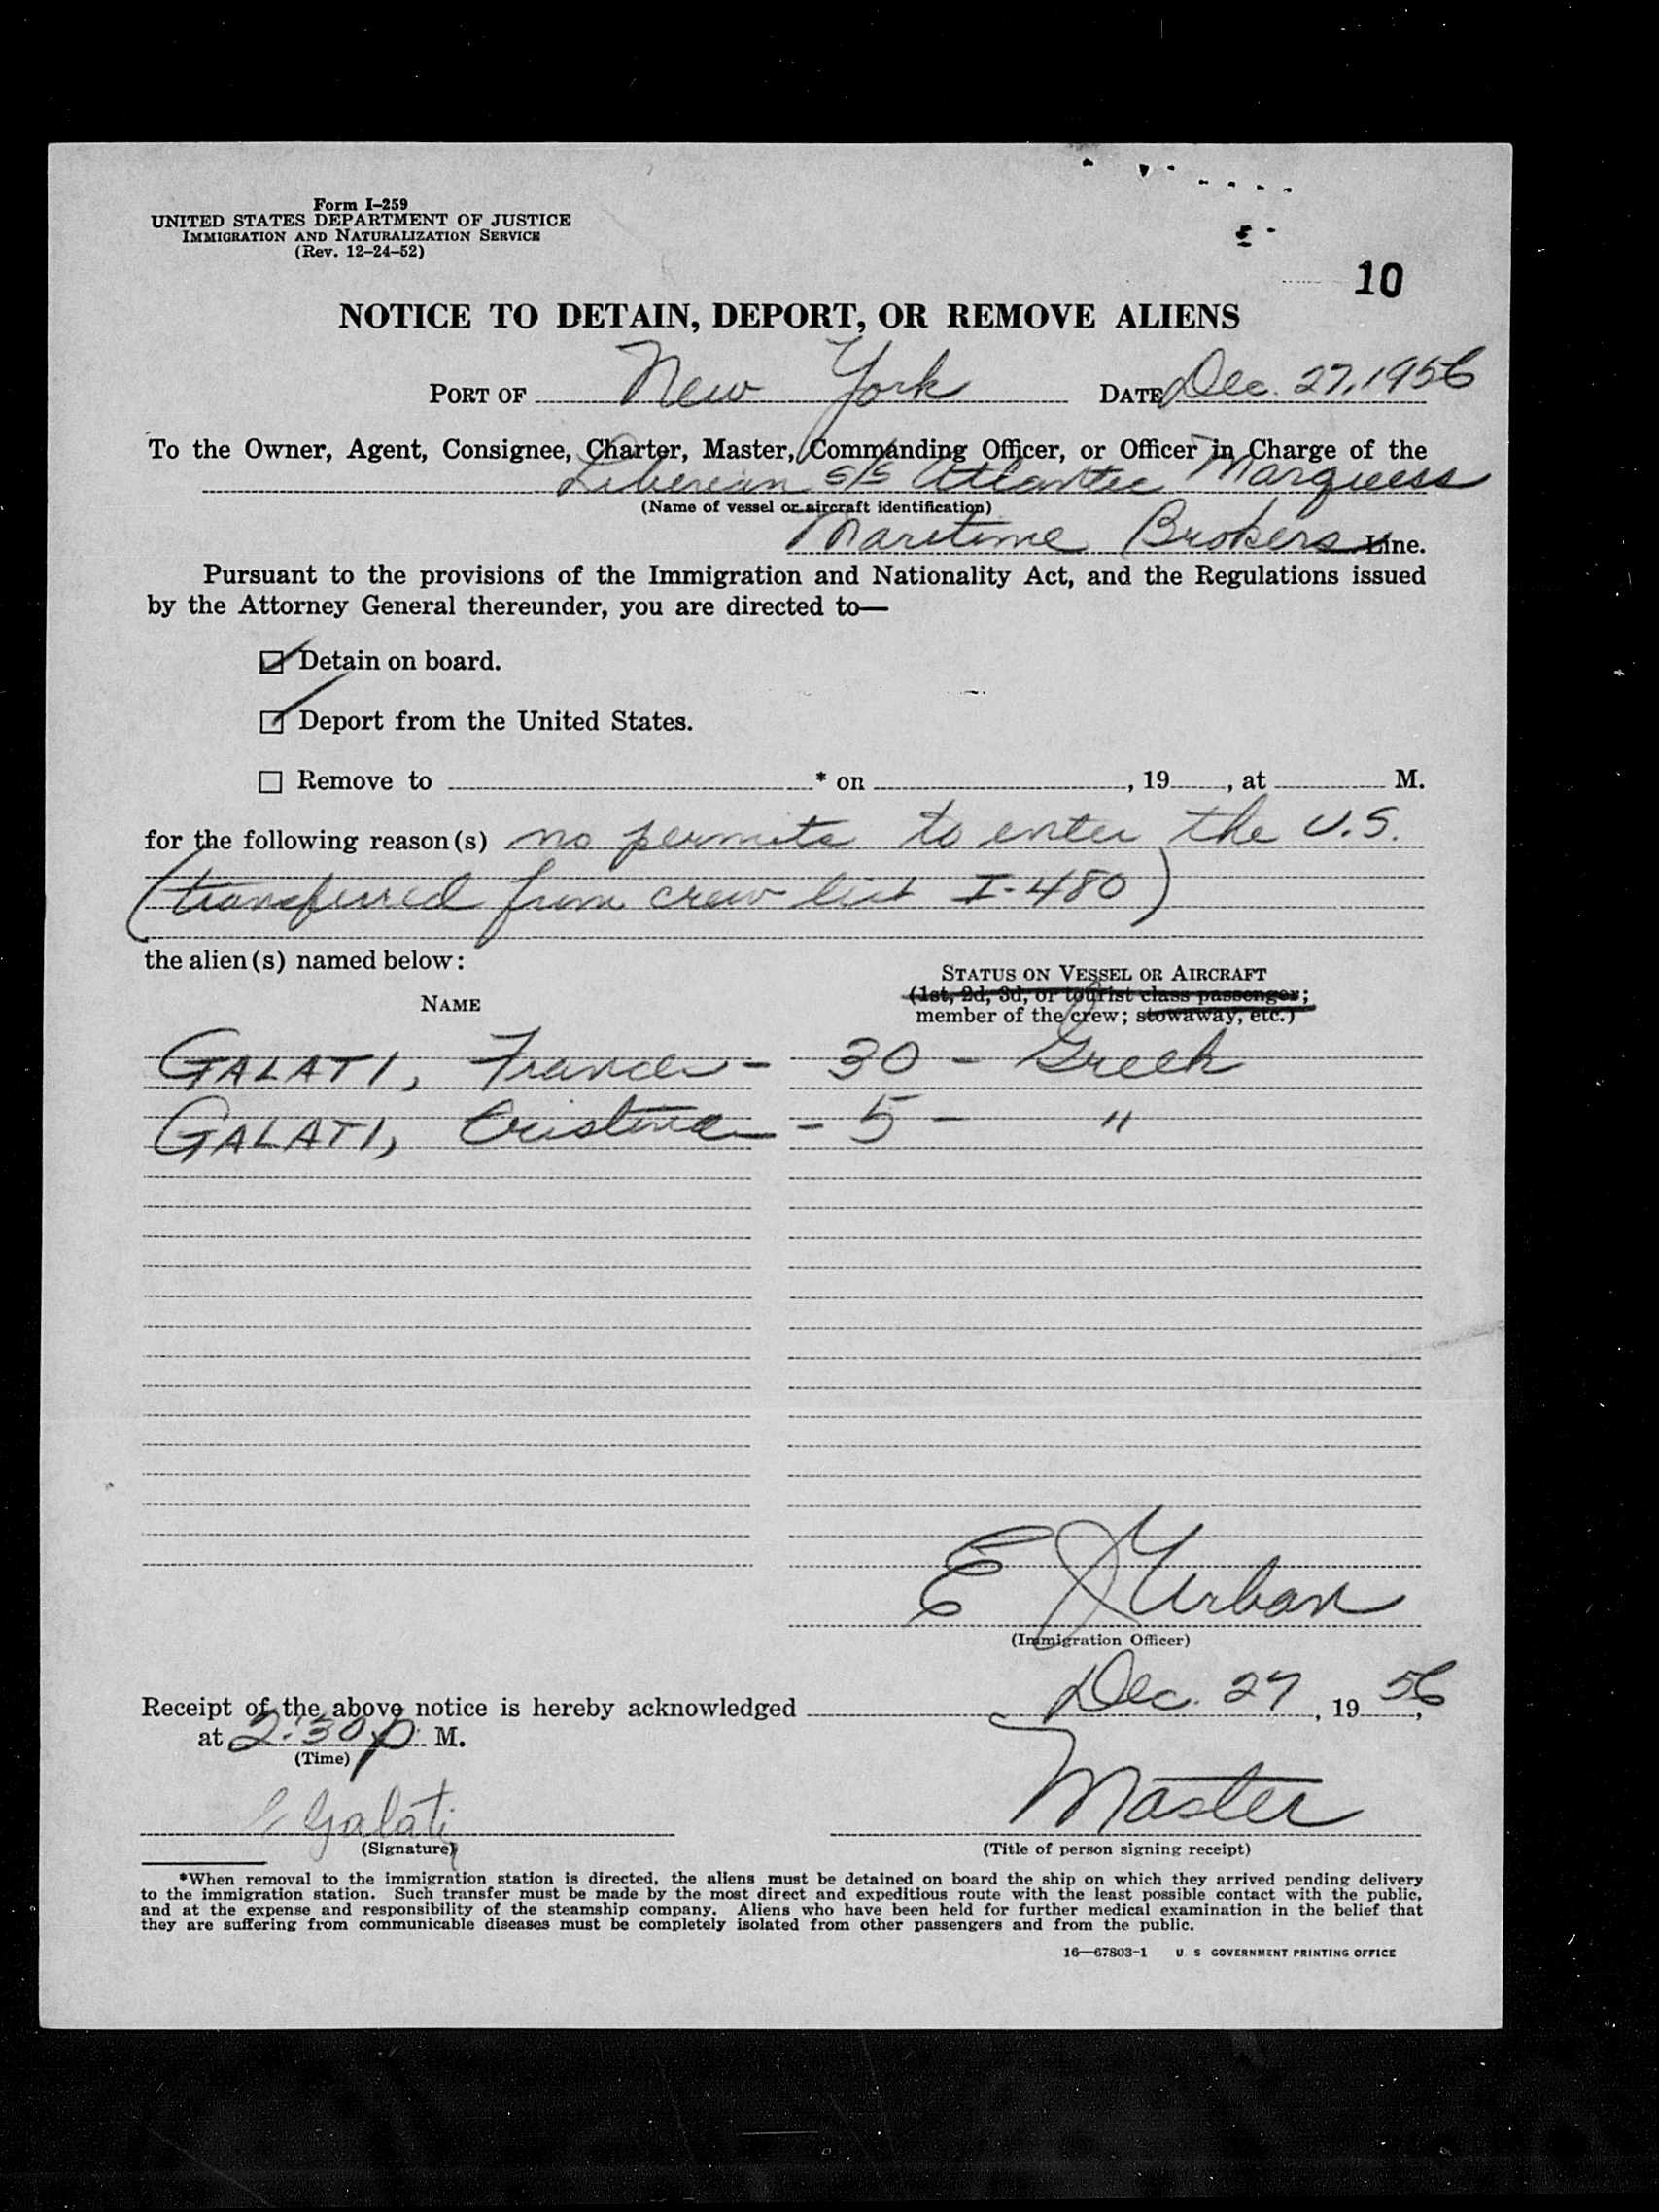 Form I-259
UNITED STATES DEPARTMENT OF JUSTICE
IMMIGRATION AND NATURALIZATION SERVICE
(Rev. 12-24-52)
10
NOTICE TO DETAIN, DEPORT, OR REMOVE ALIENS
PORT OF New York DATE Dec. 27, 1956
To the Owner, Agent, Consignee, Charter, Master, Commanding Officer, or Officer in Charge of the
Liberian S/S Atlantic Marquess
(Name of vessel or aircraft identification)
Maritime Brokers Line.
Pursuant to the provisions of the Immigration and Nationality Act, and the Regulations issued
by the Attorney General thereunder, you are directed to—
Detain on board.
Deport from the United States.
Remove to * on , 19 , at M.
for the following reason(s) no permits to enter the U.S.
(transferred from crew list I-480)
the alien(s) named below:
STATUS ON VESSEL OR AIRCRAFT
NAME
(1st, 2d, 3d, or tourist class passenger;
member of the crew; stowaway, etc.)
GALATI, Frances - 30 - Greek
GALATI, Cristina - 5 - "
E J Urban
(Immigration Officer)
Receipt of the above notice is hereby acknowledged Dec. 27, 1956,
at 2:30 p. M.
(Time)
Galati
Master
(Signature)
(Title of person signing receipt)
*When removal to the immigration station is directed, the aliens must be detained on board the ship on which they arrived pending delivery
to the immigration station. Such transfer must be made by the most direct and expeditious route with the least possible contact with the public,
and at the expense and responsibility of the steamship company. Aliens who have been held for further medical examination in the belief that
they are suffering from communicable diseases must be completely isolated from other passengers and from the public.
16—67803-1 U. S GOVERNMENT PRINTING OFFICE